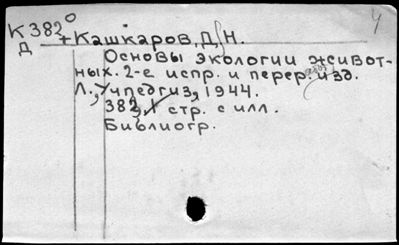 4
К 382⁰
Д + Кашкаров, Д. Н.
Основы экологии живот-
ных. 2-е испр. и перер. изд.
Л., Учпедгиз, 1944.
382, 1 стр. с илл.
Библиогр.